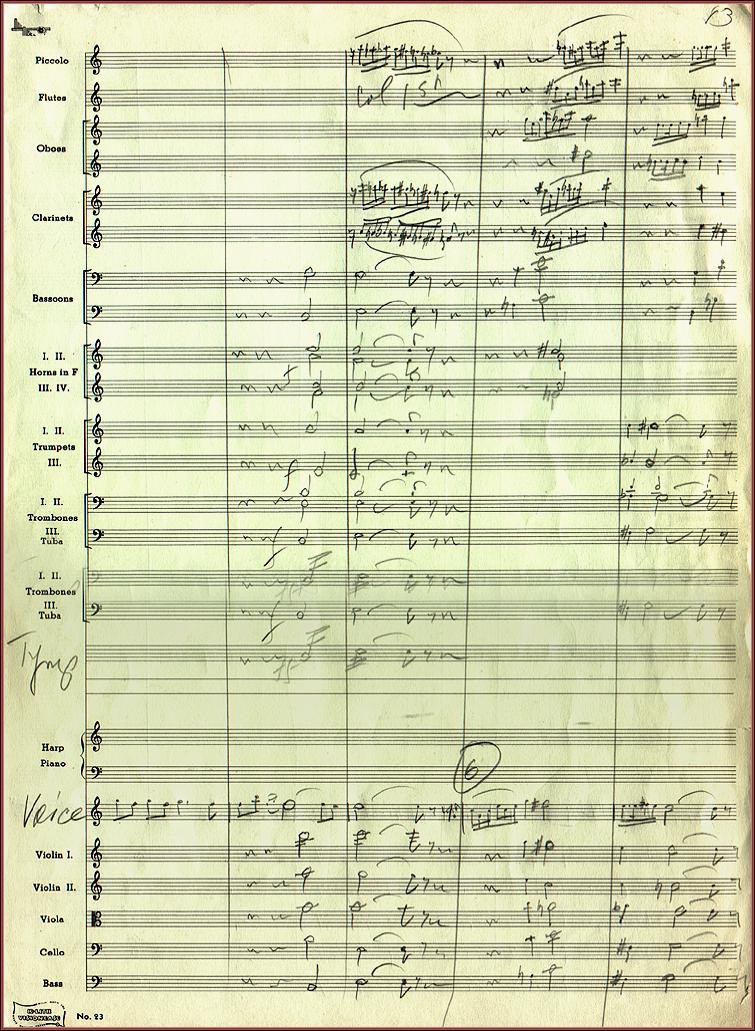 63
Piccolo
Flutes
Col 1st
Oboes
Clarinets
Bassoons
I. II.
Horns in F
III. IV.
I. II.
Trumpets
III.
I. II.
Trombones
III.
Tuba
I. II.
Trombones
III.
Tuba
Tymp
Harp
Piano
6
Voice
Violin I.
Violin II.
Viola
Cello
Bass
No. 23